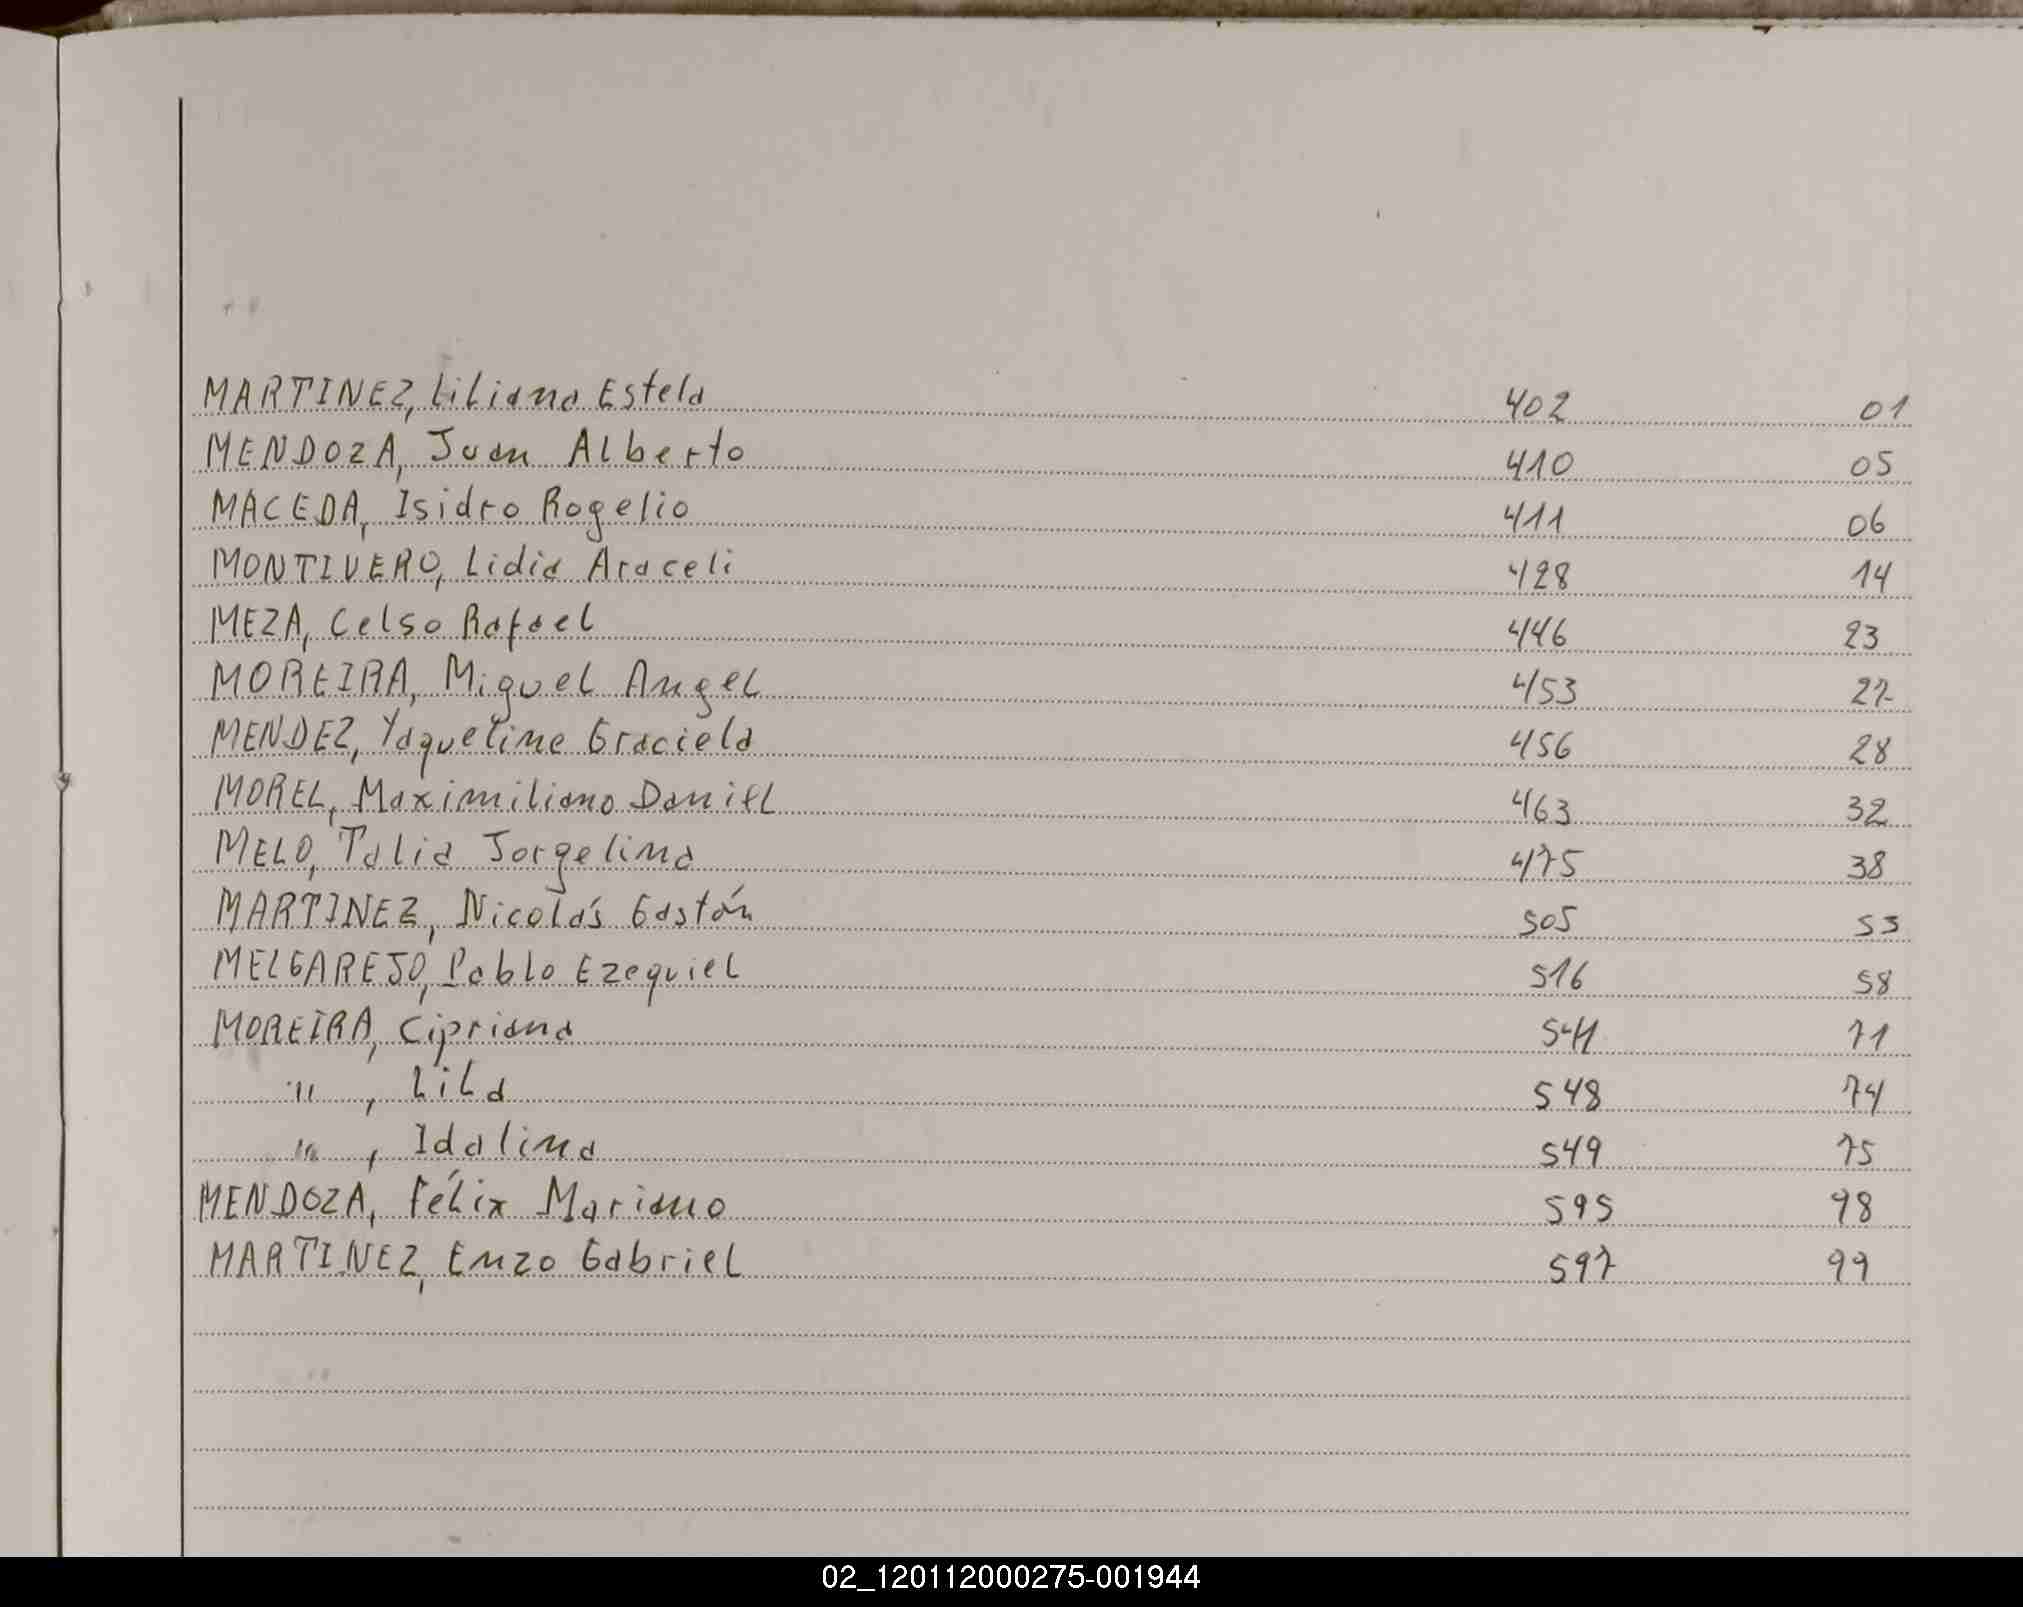 MARTINEZ, Liliana Estela 402 01
MENDOZA, Juan Alberto 410 05
MACEDA, Isidro Rogelio 411 06
MONTIVERO, Lidia Araceli 428 14
MEZA, Celso Rafael 446 23
MOREIRA, Miguel Angel 453 27
MENDEZ, Yaqueline Graciela 456 28
MOREL, Maximiliano Daniel 463 32
MELO, Talia Jorgelina 475 38
MARTINEZ, Nicolás Gastón 505 53
MELGAREJO, Pablo Ezequiel 516 58
MOREIRA, Cipriana 541 71
" , Lila 548 74
" , Idalina 549 75
MENDOZA, Félix Mariano 595 98
MARTINEZ, Enzo Gabriel 597 99
02_120112000275-001944